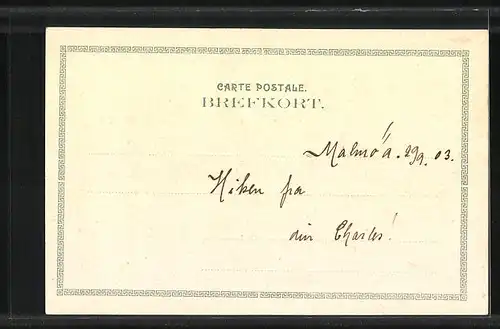 CARTE POSTALE.
BREFKORT.
Malmö a. 29/9. 03.
Hilsen fra
din Charles!